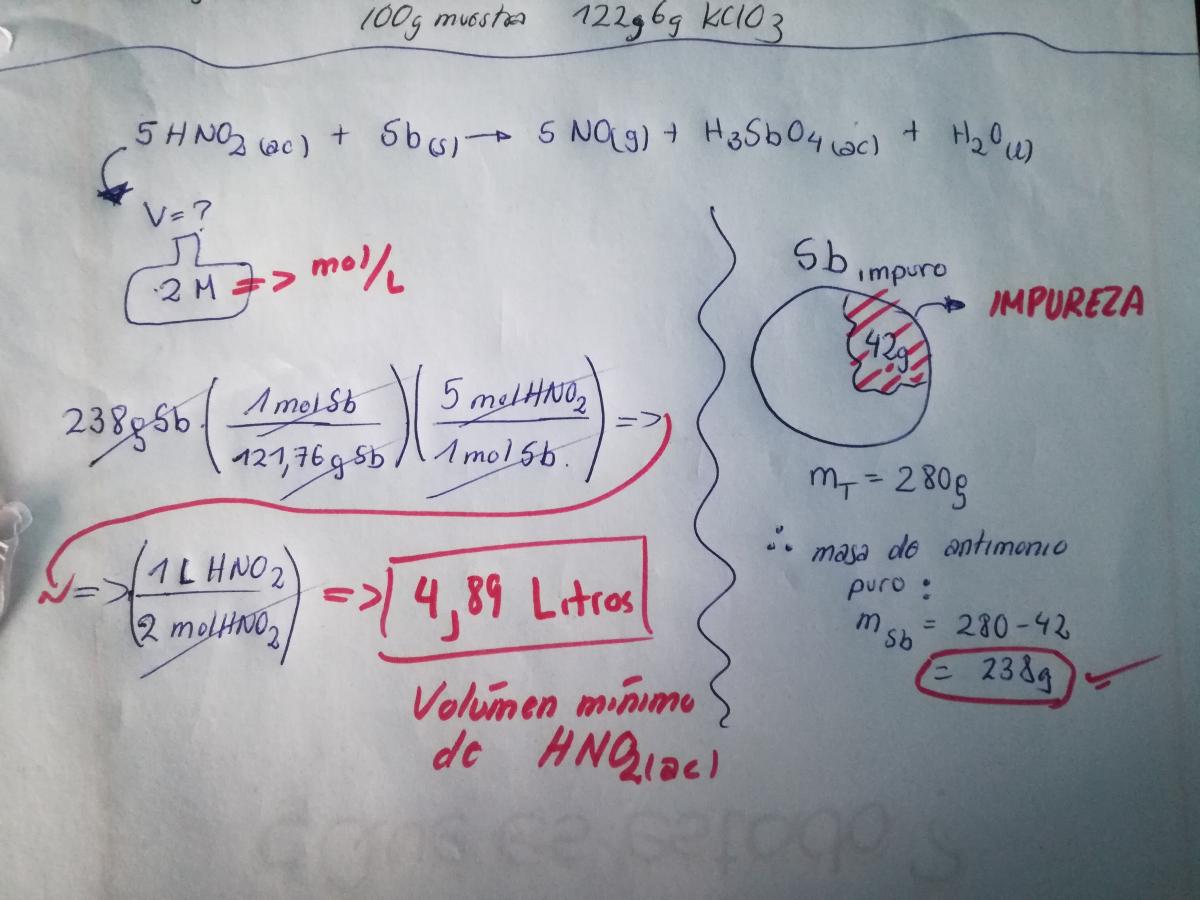 100g muestra 122g6g KClO3
5 HNO2(ac) + Sb(s) → 5 NO(g) + H3SbO4(ac) + H2O(l)
V = ?
2 M => mol/L
238gSb · (1 mol Sb / 121,76 g Sb) (5 mol HNO2 / 1 mol Sb.) =>
=> (1 L HNO2 / 2 mol HNO2) => 4,89 Litros
Volúmen mínimo
de HNO2(ac)
Sb impuro
42g
IMPUREZA
mT = 280g
∴ masa de antimonio
puro :
mSb = 280-42
= 238g
¿Que es estado?